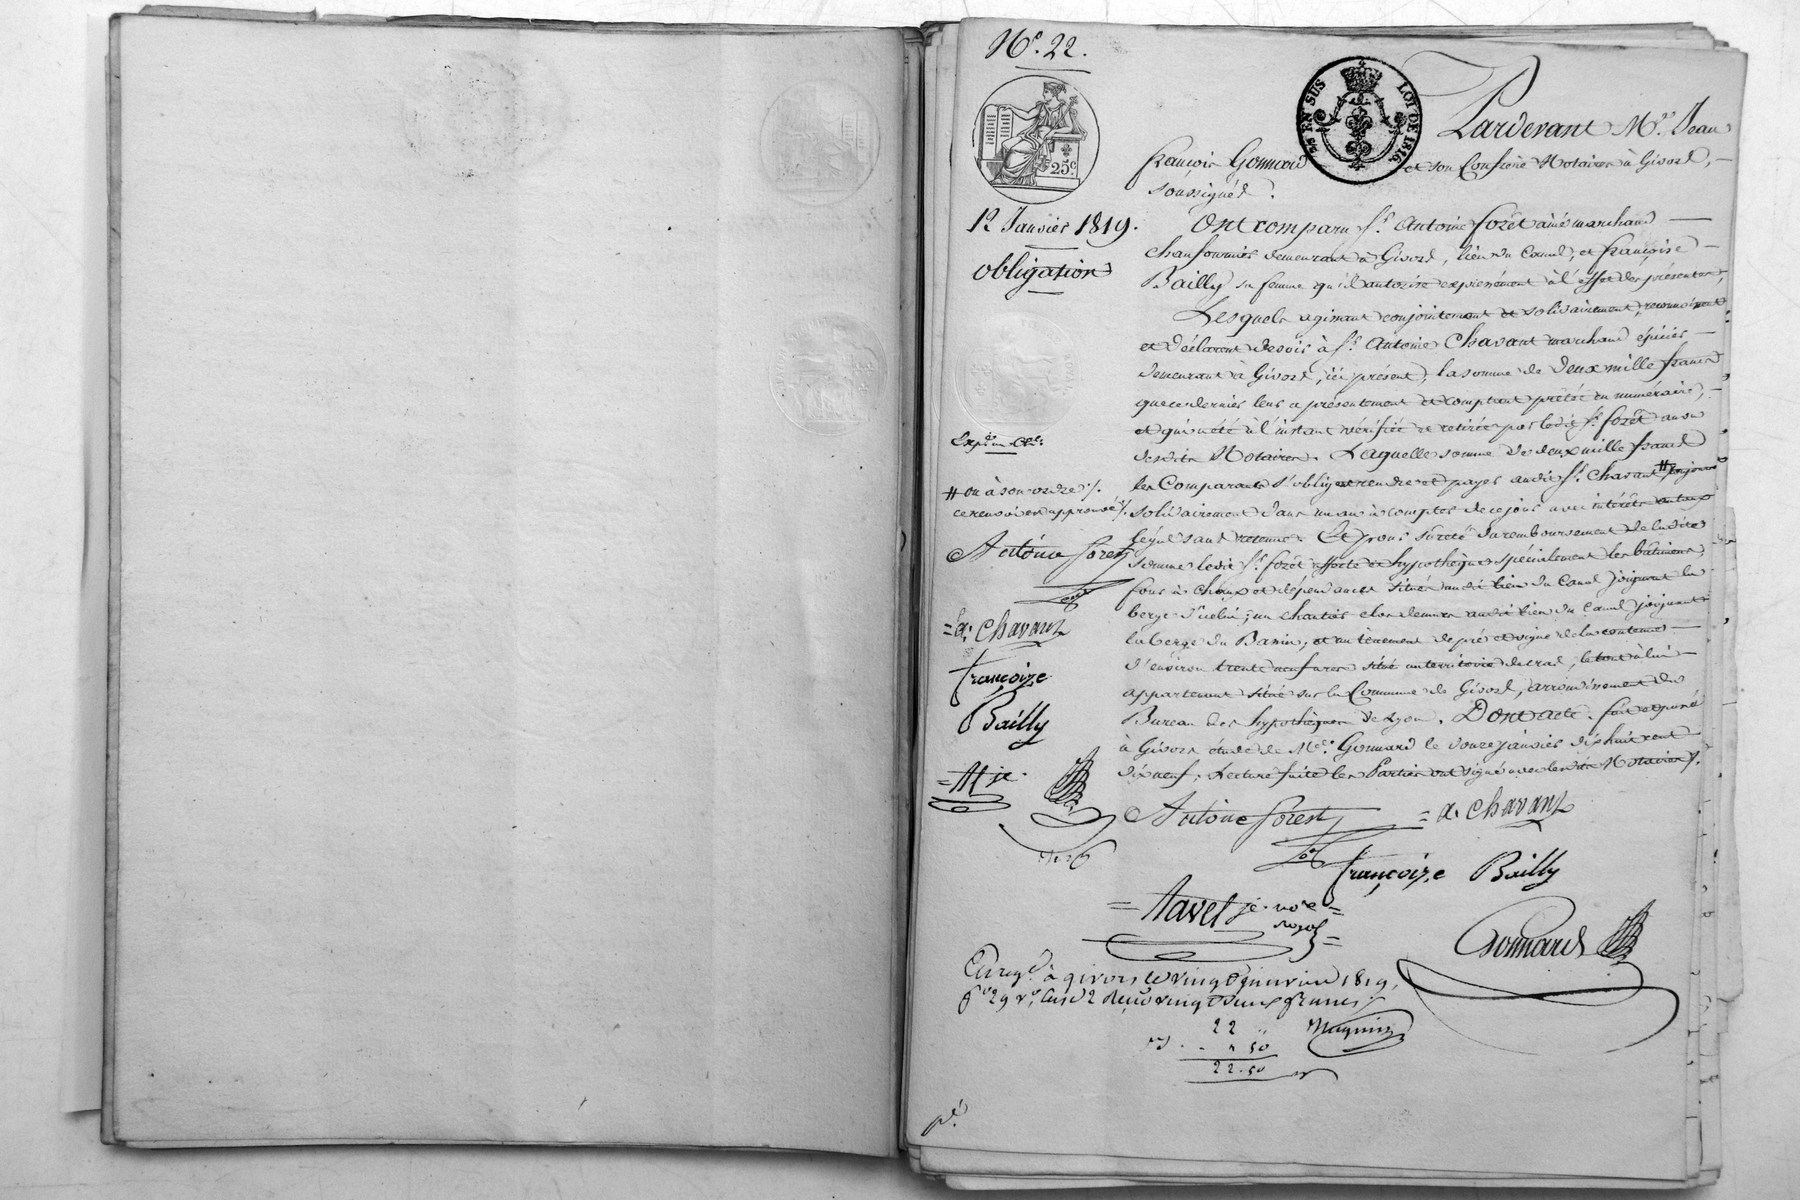 N.° 22.
25 EN SUS
LOI DE 1816.
25.c
Pardevant M.e Jean
françois Gonnard et son Confrère Notaires à Givors,
soussignés.
12 Janvier 1819.
obligation
Ont comparu S.r Antoine forêt ainé marchand
chaufournier demeurant à Givors, lieu du Canal, et françoise
Bailly sa femme qu'il autorise expressément à l'effet des présentes,
Lesquels agissant conjointement et solidairement, reconnoissent
et déclarent devoir à S.r Antoine Chavant marchand épicier
demeurant à Givors, ici présent, la somme de deux mille francs
que ce dernier leur a présentement et comptant prêté en numéraire,
et qui a été à l'instant vérifiée et retirée par ledit S.r forêt au vu
desdits Notaires. Laquelle somme de deux mille francs
les Comparants s'obligent rendre et payer audit S.r Chavant #
solidairement dans un an à compter de ce jour avec intérêts au taux
légal sans retenue. Et pour sûreté du remboursement de ladite
somme ledit S.r forêt affecte et hypothèque spécialement les bâtimens,
four à chaux et dépendances situé audit lieu du Canal joignant la
berge d'icelui; un chantier clos de murs audit lieu du Canal joignant
la berge du Bassin, et un tènement de pré et vigne de la contenue
d'environ trente neuf ares situé au territoire de , le tout à lui
appartenant situé sur la Commune de Givors, arrondissement du
Bureau des hypothèques de Lyon. Dont acte. fait et passé
à Givors étude de M.e Gonnard le douze janvier dix huit cent
dix neuf; Lecture faite les Parties ont signé avec lesdits Notaires /.
# ou à son ordre /.
ce renvoi est approuvé /.
Antoine forest
= a. Chavant
françoize
Bailly
Antoine forest
= a. Chavant
françoize Bailly
= Tavel je. no.re
royal =
Gonnard
Enreg.é à givors le vingt janvier 1819,
f.o 29 r.o Case 2 Reçu vingt deux francs
22 "
" 50
22 . 50
Magnin